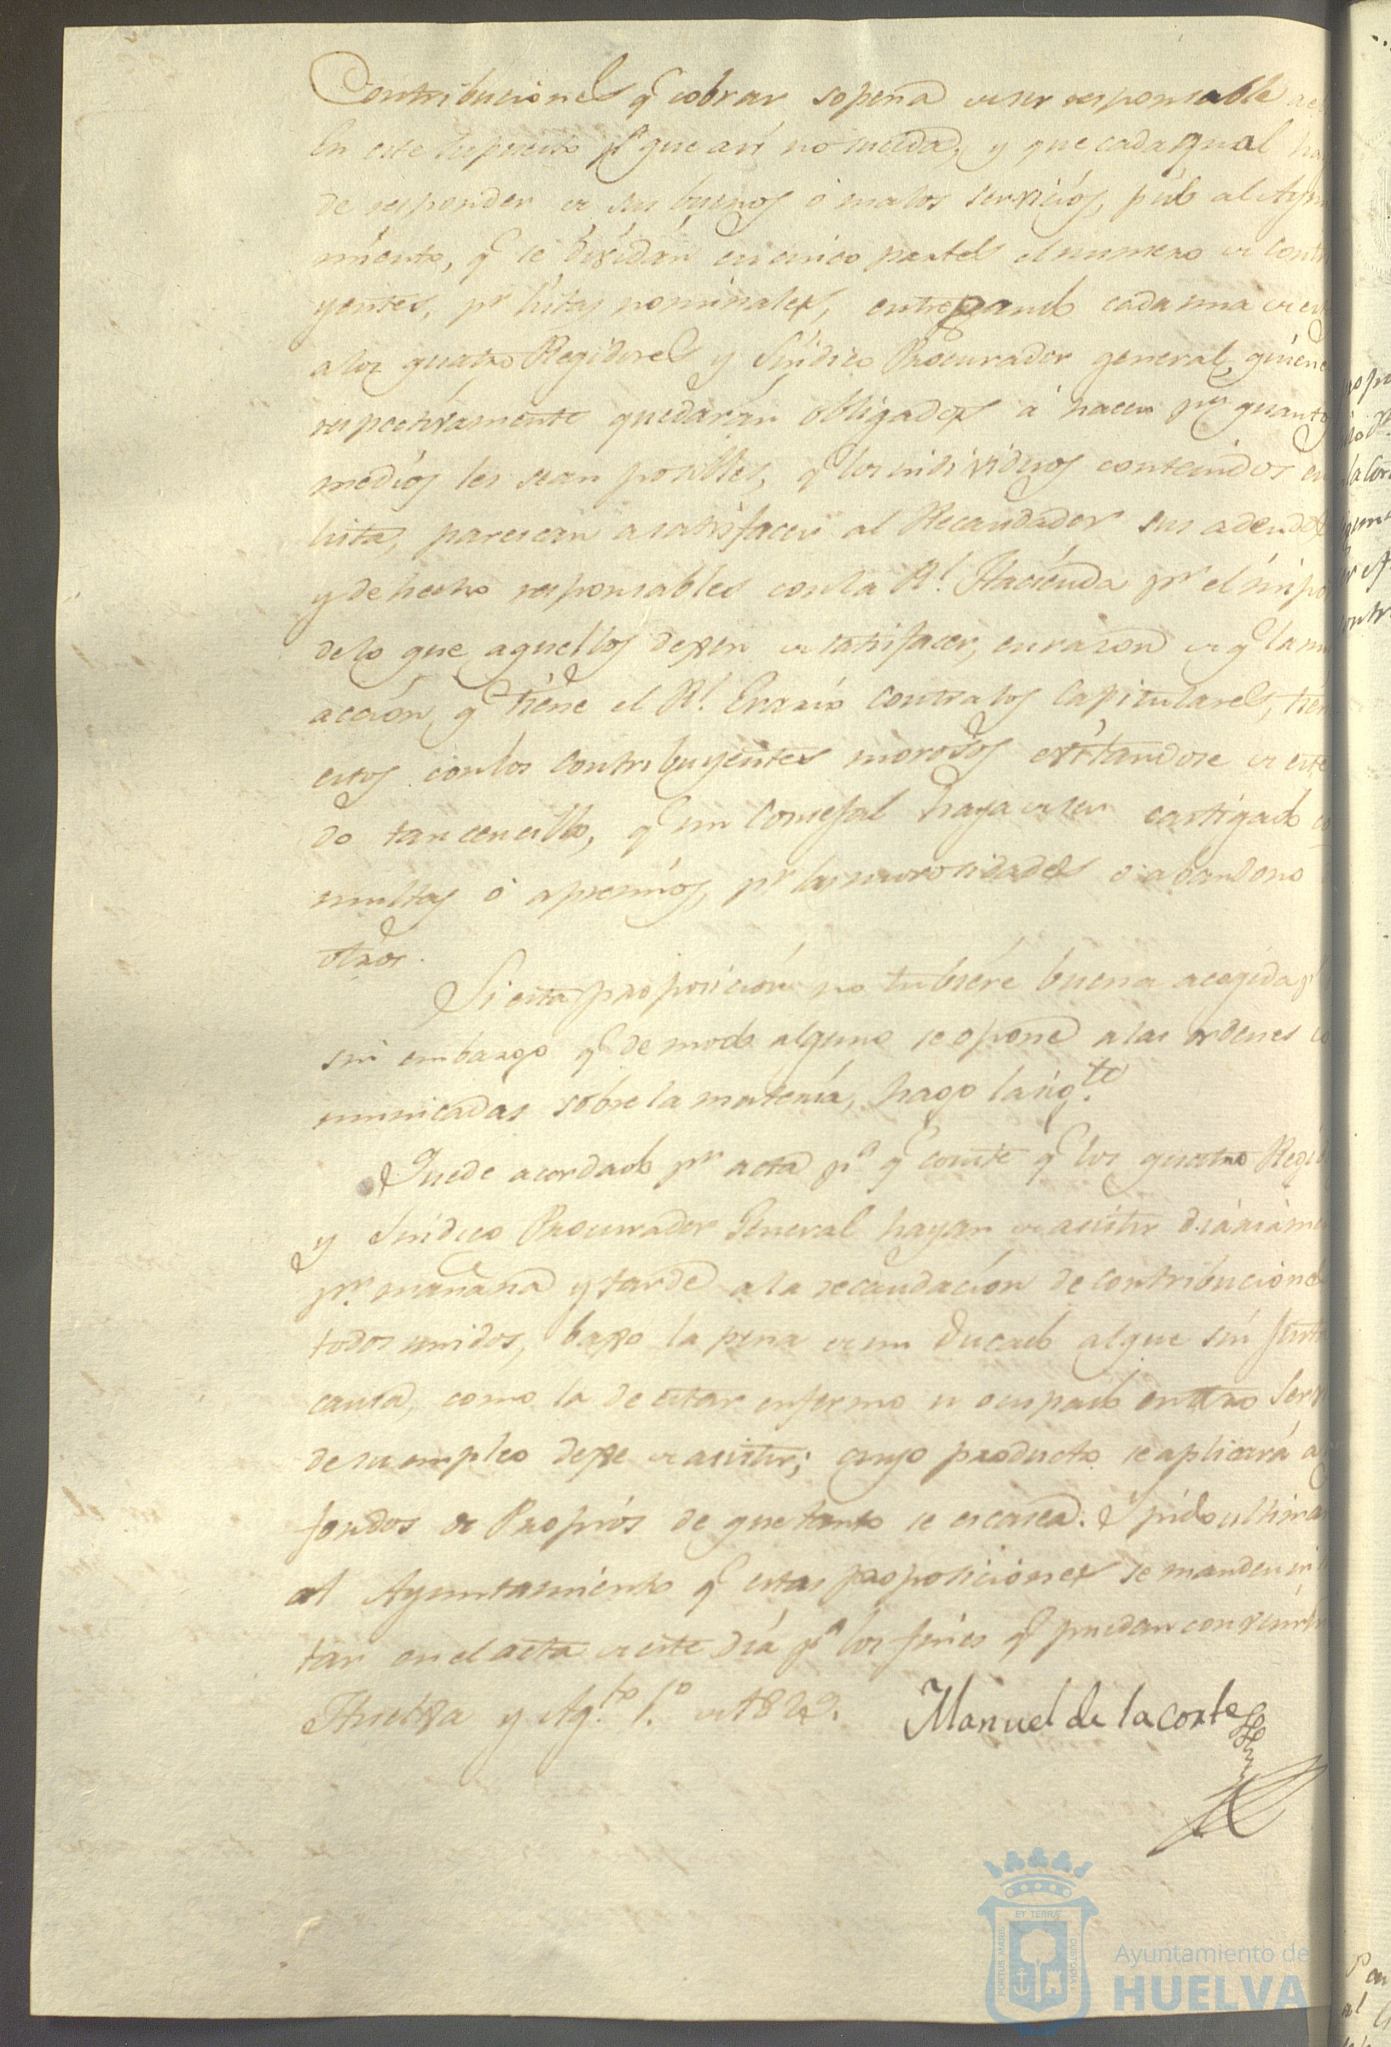 Contribuciones q.e cobrar sopena de ser responsable
En este supuesto p.a que asi no suceda, y que cada qual
de responder de sus buenos ó malos servicios, pido al Ayun
miento, q.e se dividan en cinco partes el numero de Cont
yentes, p.r listas nominales, entregando cada una de
a los quatro Regidores y Sindico Procurador general, quiene
respectivamente quedarán obligados á hacer p.r quanto
medios les sean posibles, q.e los individuos contenidos en
lista, parescan a satisfacer al Recaudador sus adeudos
y de hecho responsables con la R.l Hacienda p.r el impo
de lo que aquellos dexen de satisfacer, en razon de q.e la
acción q.e tiene el R.l Erario contra los Capitulares, tien
estos con los Contribuyentes morosos evitandose de este
do tan cencillo, q.e un Consejal haya de ser castigado
multas ó apremios, p.r las morosidades ó abandono
otros.
Si esta proposición no tubiere buena acogida
sin embargo q.e de modo alguno se opone a las ordenes
municadas sobre la materia, hago la sig.te
Quede acordado p.r acta p.a q.e conste q.e los quatro Regid
y Sindico Procurador General hayan de asistir diariame
p.r mañana y tarde a la recaudación de contribucione
todos unidos, baxo la pena de un Ducado al que sin justa
causa, como la de estar enfermo u ocupado en otro Serv
de su empleo dexe de asistir; cuyo producto se aplicará a
fondos de Propios de que tanto se escasea. Y pido ultima
al Ayuntamiento q.e estas proposiciones se manden in
tar en el acta de este dia p.a los fines q.e puedan convenir
Huelva y Ag.to 1.o de 182
Manuel de la Corte
PORTUS MARIS ET TERRAE CUSTODIA
Ayuntamiento de
HUELVA